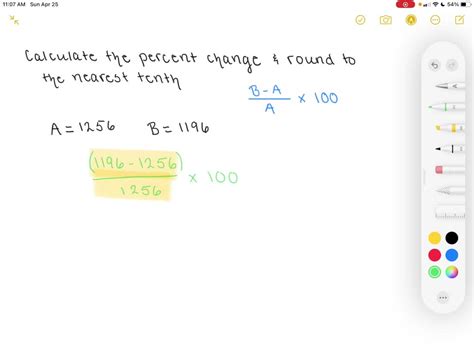 11:07 AM Sun Apr 25
54%
Calculate the percent change & round to
the nearest tenth
B-A
A
x 100
A = 1256 B = 1196
(1196 - 1256)
1256
x 100